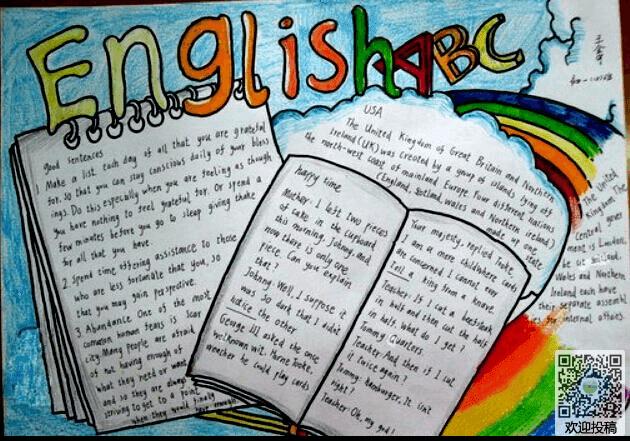 English ABC
good sentences
1 Make a list each day of all that you are grateful
for. so that you can stay conscious daily of your bless
ings. Do this especially when you are feeling as though
you have nothing to feel grateful for. Or spend a
few minutes before you go to sleep giving thake
for all that you have.
2 Spend time offering assistance to those
who are less fortunate that you, so
that you may gain perspective.
3 Abundance One of the most
common human fears is scar
city. Many people are afraid
of not having enough of
what they need or want
and so they are always
striving to get to a point
when they would finally
have enough
happy time
Mother: I left two pieces
of cake in the cupboard
this morning, Johnny, and
now there is only one
piece. Can you explain
that?
Johnny: Well, I suppose it
was so dark that I didn't
notice the other
George III asked the once
wellknown wit. Horne Tooke,
wheather he could play cards
Your majesty, replied Tooke,
I am a mere child where cards
are concerned I cannot even
tell a king from a knave.
Teacher: If I cut a beefsteak
in half and then cut the half
in half. what do I get?
Tommy: Quarters.
Teacher: And then if I cut
it twice again?
Tommy: hamburger. It isn't
right?
Teacher: Oh, my god!
USA
The United Kingdom of Great Britain and Northern
Ireland (UK) was created by a group of islands lying off
the north-west coast of mainland Europe. Four different nations
(England, Scotland, wales and Northern ireland)
made up one
state
The United
Kingdom The
central gover
ment is London,
Wales and Northern
Ireland each have
their separate assembl
for internal affairs.
欢迎投稿